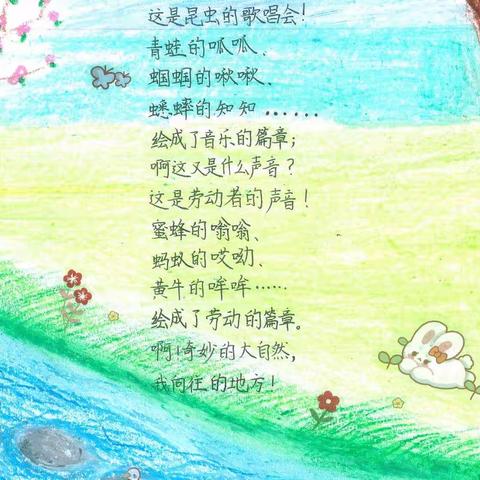 这是昆虫的歌唱会!
青蛙的呱呱、
蝈蝈的啾啾、
蟋蟀的知知......
绘成了音乐的篇章;
啊这又是什么声音?
这是劳动者的声音!
蜜蜂的嗡嗡、
蚂蚁的哎呦、
黄牛的哞哞……
绘成了劳动的篇章。
啊!奇妙的大自然,
我向往的地方!